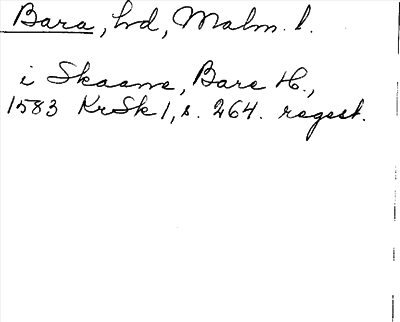 Bara, hrd, Malm. l.
i Skaane, Bare H.,
1583 KrSk 1, s. 264. regest.